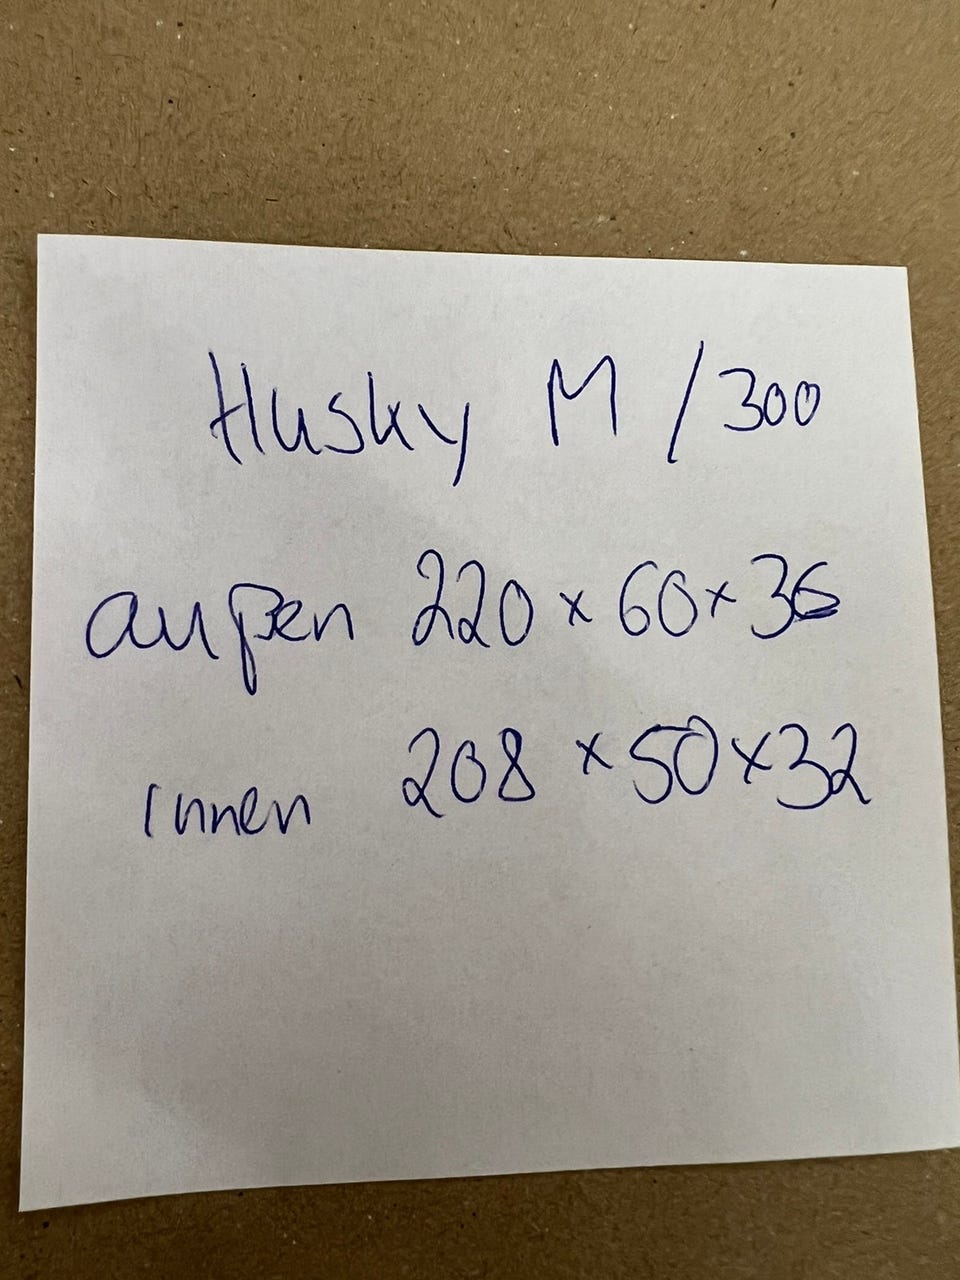 Husky M / 300
außen 220 x 60 x 36
innen 208 x 50 x 32